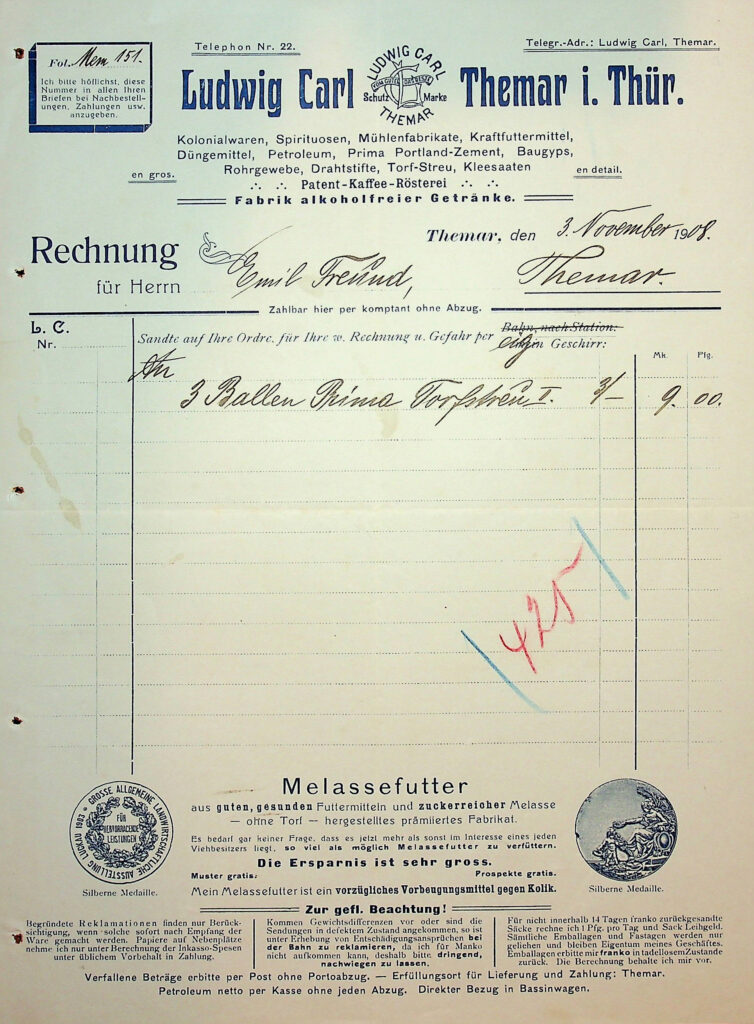 Fol. Mem 151.
Ich bitte höflichst, diese
Nummer in allen Ihren
Briefen bei Nachbestell-
ungen, Zahlungen usw.
anzugeben.
Telephon Nr. 22.
Telegr.-Adr.: Ludwig Carl, Themar.
Ludwig Carl
LUDWIG CARL
Schutz Marke
THEMAR
Themar i. Thür.
Kolonialwaren, Spirituosen, Mühlenfabrikate, Kraftfuttermittel,
Düngemittel, Petroleum, Prima Portland-Zement, Baugyps,
en gros. Rohrgewebe, Drahtstifte, Torf-Streu, Kleesaaten en detail.
Patent-Kaffee-Rösterei
Fabrik alkoholfreier Getränke.
Themar, den 3. November 1908.
Rechnung
für Herrn Emil Freund, Themar.
Zahlbar hier per komptant ohne Abzug.
L. C.
Nr.
Sandte auf Ihre Ordre, für Ihre w. Rechnung u. Gefahr per Bahn, nach Station:
eig Geschirr:
Mk. Pfg.
An
3 Ballen Prima Torfstreu I. 3/– 9. 00.
425
GROSSE ALLGEMEINE LANDWIRTSCHAFTLICHE AUSSTELLUNG LUCKAU 1903
FÜR
HERVORRAGENDE
LEISTUNGEN
Silberne Medaille.
Melassefutter
aus guten, gesunden Futtermitteln und zuckerreicher Melasse
— ohne Torf — hergestelltes prämiiertes Fabrikat.
Es bedarf gar keiner Frage, dass es jetzt mehr als sonst im Interesse eines jeden
Viehbesitzers liegt, so viel als möglich Melassefutter zu verfüttern.
Die Ersparnis ist sehr gross.
Muster gratis. Prospekte gratis.
Mein Melassefutter ist ein vorzügliches Vorbeugungsmittel gegen Kolik.
Silberne Medaille.
Zur gefl. Beachtung!
Begründete Reklamationen finden nur Berück-
sichtigung, wenn solche sofort nach Empfang der
Ware gemacht werden. Papiere auf Nebenplätze
nehme ich nur unter Berechnung der Inkasso-Spesen
unter üblichem Vorbehalt in Zahlung.
Kommen Gewichtsdifferenzen vor oder sind die
Sendungen in defektem Zustand angekommen, so ist
unter Erhebung von Entschädigungsansprüchen bei
der Bahn zu reklamieren, da ich für Manko
nicht aufkommen kann, deshalb bitte dringend,
nachwiegen zu lassen.
Für nicht innerhalb 14 Tagen franko zurückgesandte
Säcke rechne ich 1 Pfg. pro Tag und Sack Leihgeld.
Sämtliche Emballagen und Fastagen werden nur
geliehen und bleiben Eigentum meines Geschäftes.
Emballagen erbitte mir franko in tadellosem Zustande
zurück. Die Berechnung behalte ich mir vor.
Verfallene Beträge erbitte per Post ohne Portoabzug. — Erfüllungsort für Lieferung und Zahlung: Themar.
Petroleum netto per Kasse ohne jeden Abzug. Direkter Bezug in Bassinwagen.